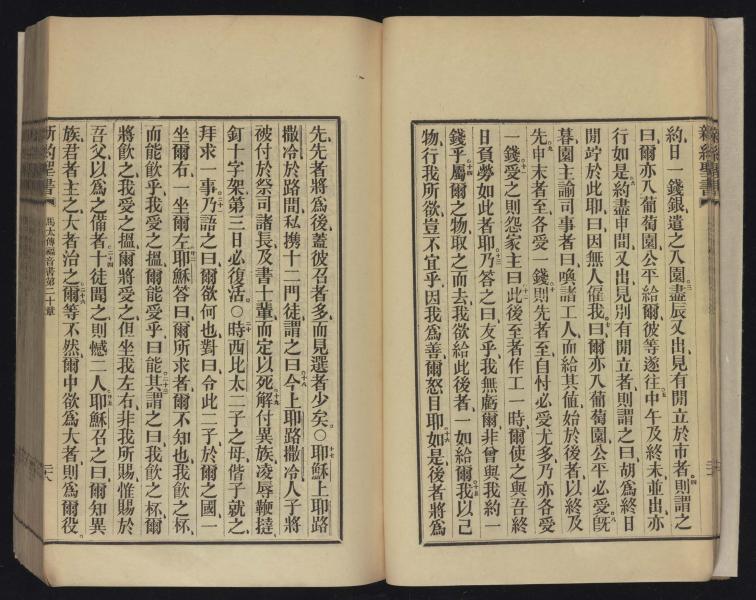 新約聖書
約日一錢銀遣之入園盡辰又出見有閒立於市者則謂之
曰爾亦入葡萄園公平給爾彼等遂往中午及終未並出亦
行如是約盡申間又出見別有閒立者則謂之曰胡爲終日
閒竚於此耶曰因無人僱我曰爾亦入葡萄園公平必受旣
暮園主諭司事者曰喚諸工人而給其値始於後者以終及
先申末者至各受一錢則先者至自忖必受尤多乃亦各受
一錢受之則怨家主曰此後至者作工一時爾使之與吾終
日負勞如此者耶乃答之曰友乎我無虧爾非曾與我約一
錢乎屬爾之物取之而去我欲給此後者一如給爾我以己
物行我所欲豈不宜乎因我爲善爾怒目耶如是後者將爲
先先者將爲後蓋被召者多而見選者少矣○耶穌上耶路
撒冷於路間私携十二門徒謂之曰今上耶路撒冷人子將
被付於祭司諸長及書士輩而定以死解付異族凌辱鞭撻
釘十字架第三日必復活○時西比太二子之母偕子就之
拜求一事乃語之曰爾欲何也對曰令此二子於爾之國一
坐爾右一坐爾左耶穌答曰爾所求者爾不知也我飲之杯
而能飲乎我受之搵爾能受乎曰能其謂之曰我飲之杯爾
將飲之我受之搵爾將受之但坐我左右非我所賜惟賜於
吾父以爲之備者十徒聞之則憾二人耶穌召之曰爾知異
族君者主之大者治之爾等不然爾中欲爲大者則爲爾役
新約聖書
馬太傳福音書第二十章